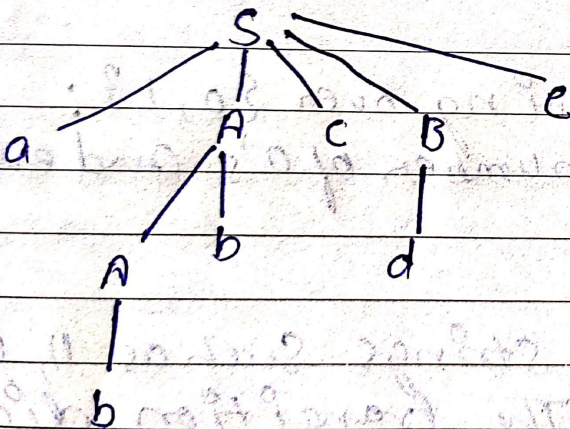 S
a A C B e
A b d
b